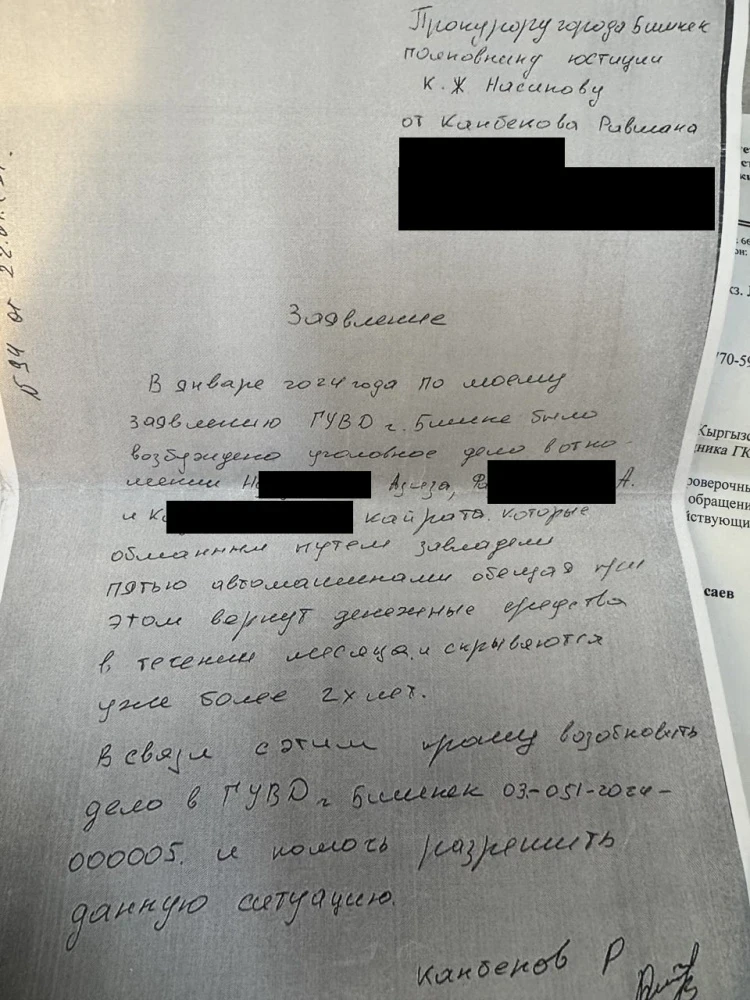 Прокурору города Бишкек
полковнику юстиции
К.Ж Насипову
от Канбекова Равшана
Заявление
В январе 2024 года по моему
заявлению ГУВД г. Бишке было
возбуждено уголовное дело в отно-
шении Н Азиза, А.
и К Кайрата. которые
обманным путем завладели
пятью автомашинами обещая при
этом вернут денежные средства
в течении месяца. и скрываются
уже более 2х лет.
В связи с этим прошу возобновить
дело в ГУВД г Бишкек 03-051-2024-
000005. и помочь разрешить
данную ситуацию.
Канбеков Р
№ 94 от
кз.
770-59
Кыргызс
ника ГК
роверочны
обращени
йствующи
саев